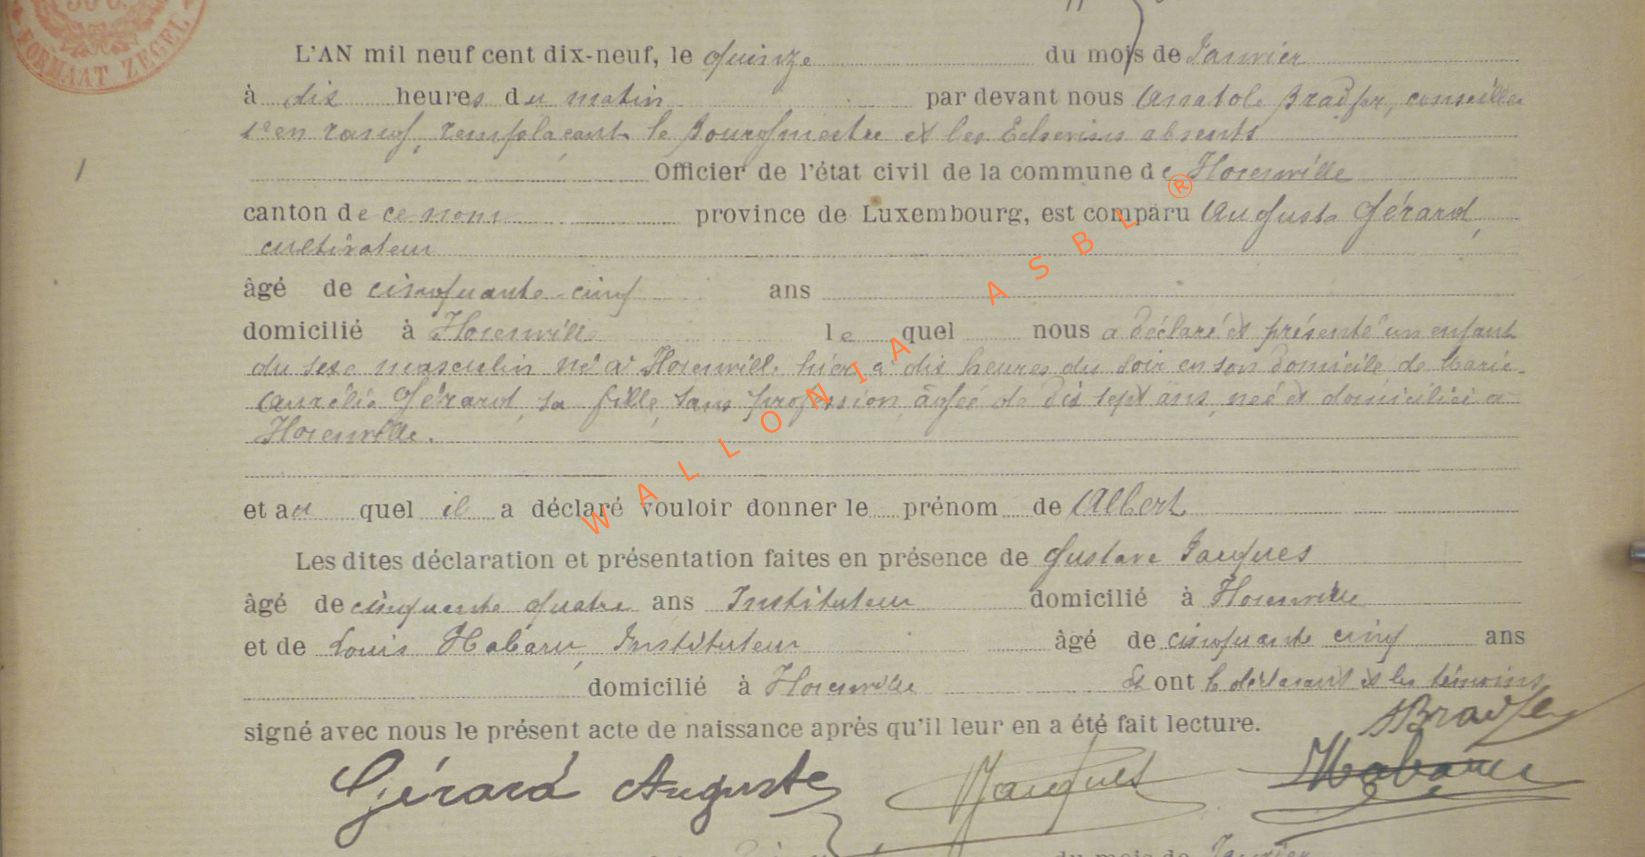 FORMAAT ZEGEL
L'AN mil neuf cent dix-neuf, le quinze du mois de Janvier
à dix heures du matin par devant nous Anatole Bradfer, conseiller
1er en rang, remplaçant le Bourgmestre et les Echevins absents
Officier de l'état civil de la commune de Hosenville
canton de ce nom province de Luxembourg, est comparu Auguste Gérard,
cultivateur
âgé de cinquante-cinq ans
domicilié à Hosenville lequel nous a déclaré et présenté un enfant
du sexe masculin né à Hosenville hier à dix heures du soir en son domicile de Marie-
Aurélie Gérard, sa fille, sans profession, âgée de dix sept ans, née et domiciliée à
Hosenville.
et au quel il a déclaré vouloir donner le prénom de Albert
Les dites déclaration et présentation faites en présence de Gustave Jacques
âgé de cinquante quatre ans Instituteur domicilié à Hosenville
et de Louis Habaru, Instituteur âgé de cinquante cinq ans
domicilié à Hosenville Et ont le déclarant et les témoins
signé avec nous le présent acte de naissance après qu'il leur en a été fait lecture.
ABradfer
Gérard Auguste Jacques Habaru
du mois de Janvier
WALLONIA ASBL ®